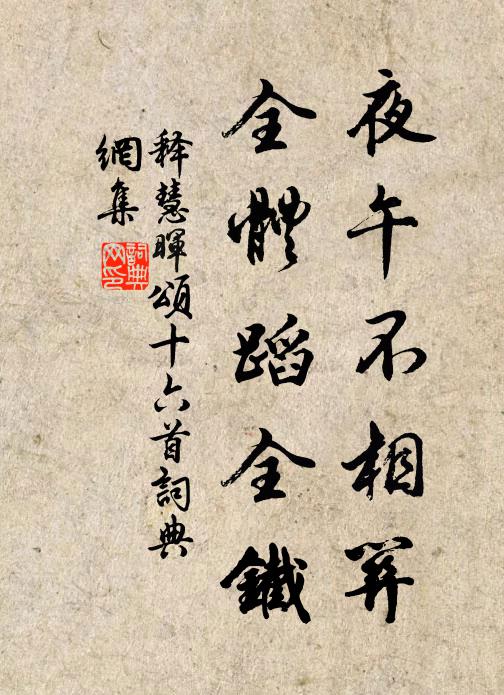 夜午不相
全體蹈全鐵
释慧暉頌十六首詞典
網集
詞典
网印